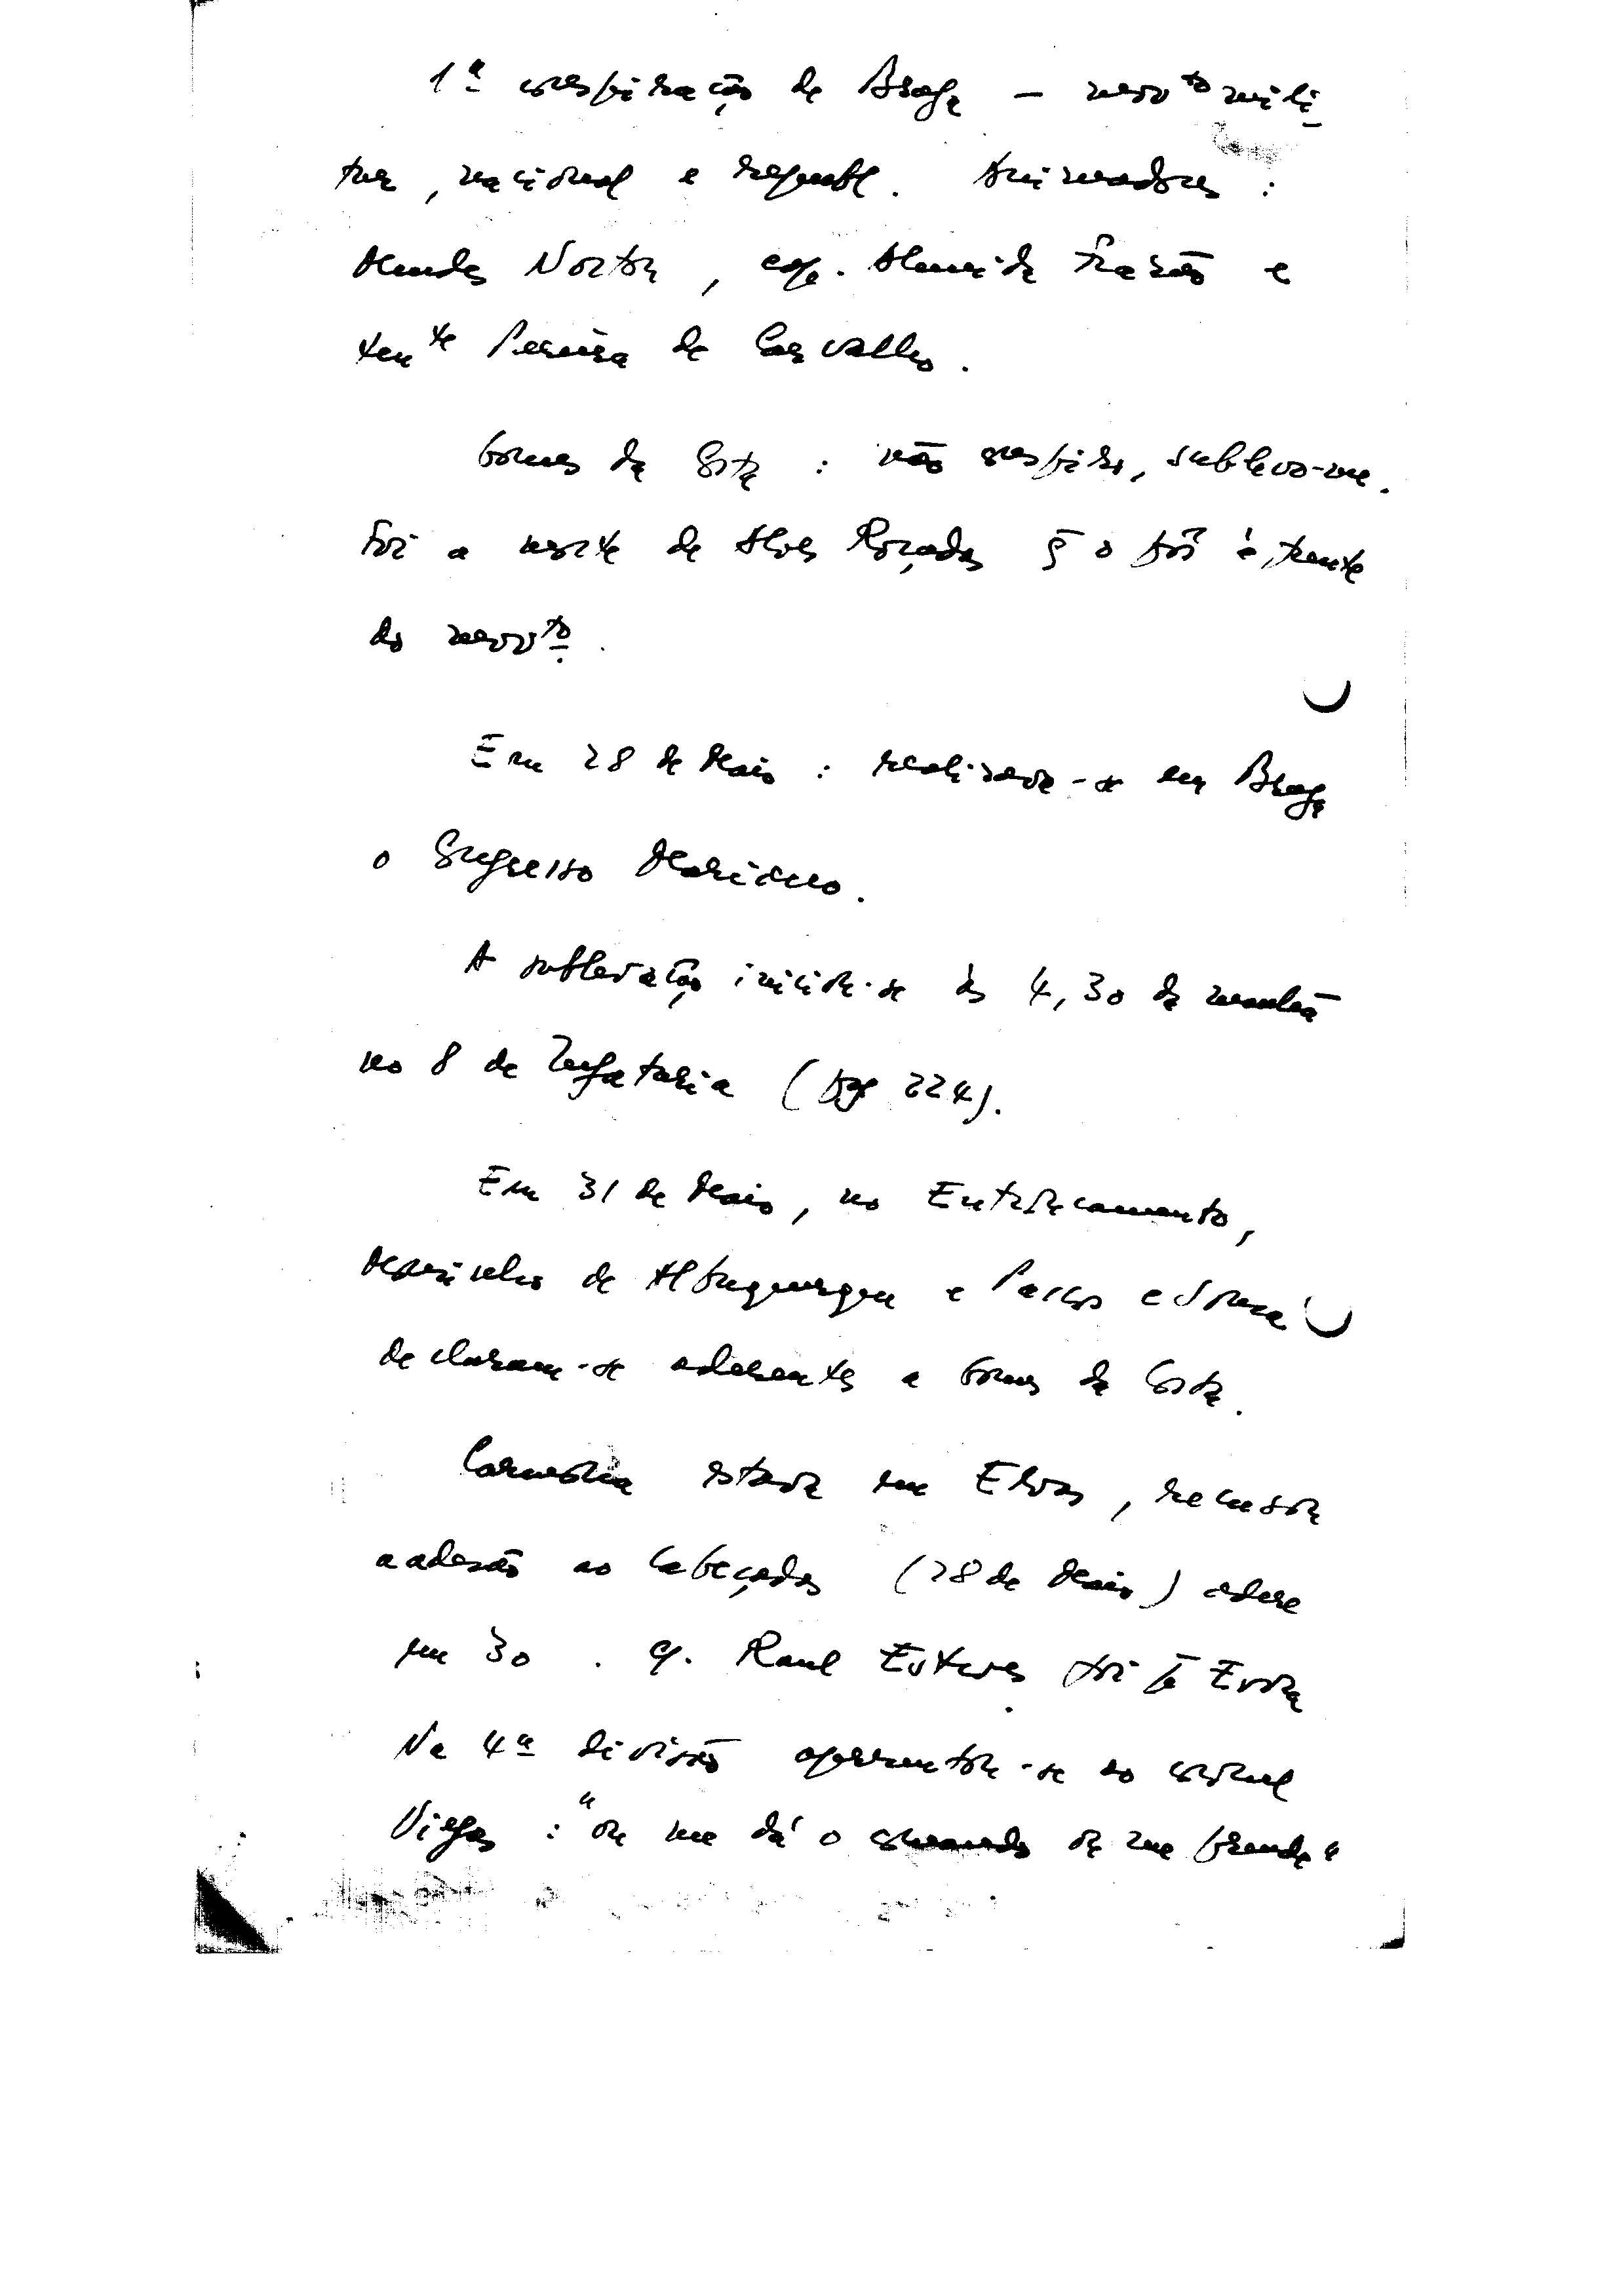 1ª conspiração de Braga – movto mili-
tar, nacional e republ. Animadores :
Mendes Norton, cap. Almeida Frazão e
tente Pereira de Carvalho.
Gomes da Costa : não conspiro, sublevo-me.
Foi a morte de Alves Roçadas q̄ o pôs à frente
do movto.
Em 28 de Maio : realizava-se em Braga
o Congresso Mariano.
A sublevação iniciou-se às 4,30 da manhã
no 8 de Infataria (pag 224).
Em 31 de Maio, no Entroncamento,
Mousinho de Albuquerque e Passos e Sousa
declaram-se aderentes a Gomes da Costa.
Carmona estava em Elvas, recusou
a adesão ao Cabeçadas (28 de Maio) adere
em 30 . q. Raul Esteves foi pª Evora
Na 4ª divisão apresentou-se ao coronel
Viegas : "ou me dá o comando ou me prende"